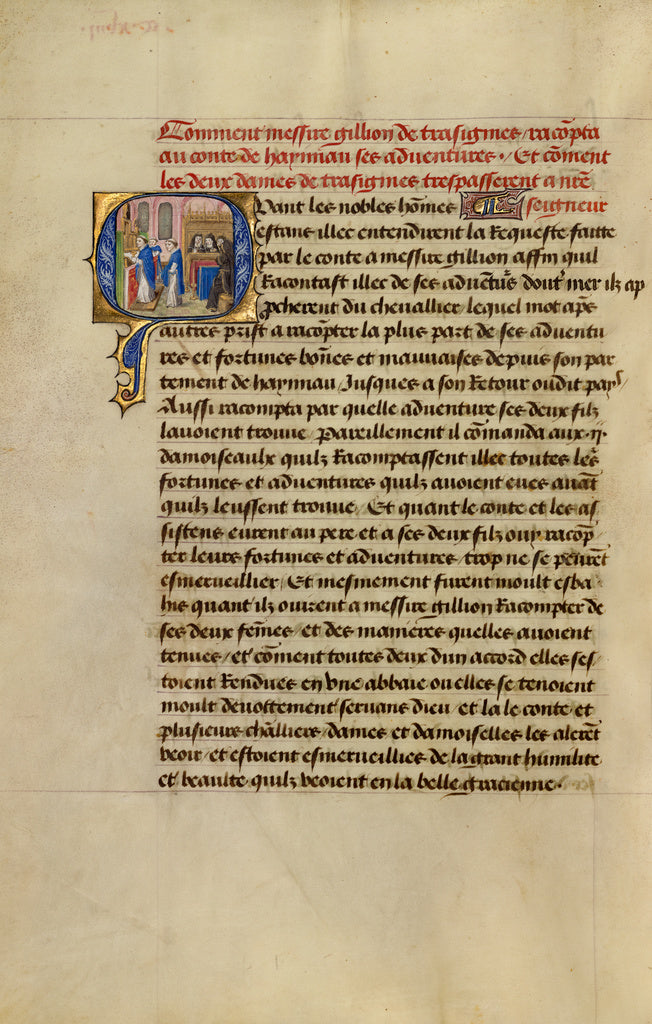 Comment messire gillion de trasignies / racõpta
au conte de haynnau ses adventures . / Et cõment
les deux dames de trasignies trespasserent a nr̃e
Quant les nobles hõmes seigneur
estans illec entendirent la Requeste faitte
par le conte a messire gillion affin quil
Racontast illec de ses adventũs doultr̃ mer ilz ap
pcherent du chevallier lequel mot apẽs
autres prist a racõpter la plus part de ses adventu
res et fortunes bõnes et mauvaises depuis son par
tement de haynnau / Jusques a son Retour oudit pays /
Aussi racompta par quelle adventure ses deux filz
lavoient trouve / Pareillement il cõmanda aux .ii.
damoiseaulx quilz Racomptassent illec toutes les
fortunes et adventures quilz avoient eues avãt
quilz leussent trouve / Et quant le conte et les as
sistens eurent au pere et a ses deux filz ouy racõp
ter leurs fortunes et adventures / trop ne se peurẽt
esmerveillier / Et mesmement furent moult esba
his quant ilz ouirent a messire gillion Racompter de
ses deux fem̃es / et des manieres quelles avoient
tenues / et cõment toutes deux dun accord elles ses
toient Rendues en une abbaie ou elles se tenoient
moult devottement servans dieu / et la le conte et
plusieurs chãlliers / dames et damoiselles les alerẽt
veoir / et estoient esmerveillies de la grant humilite
et beaulte quilz veoient en la belle gracienne .